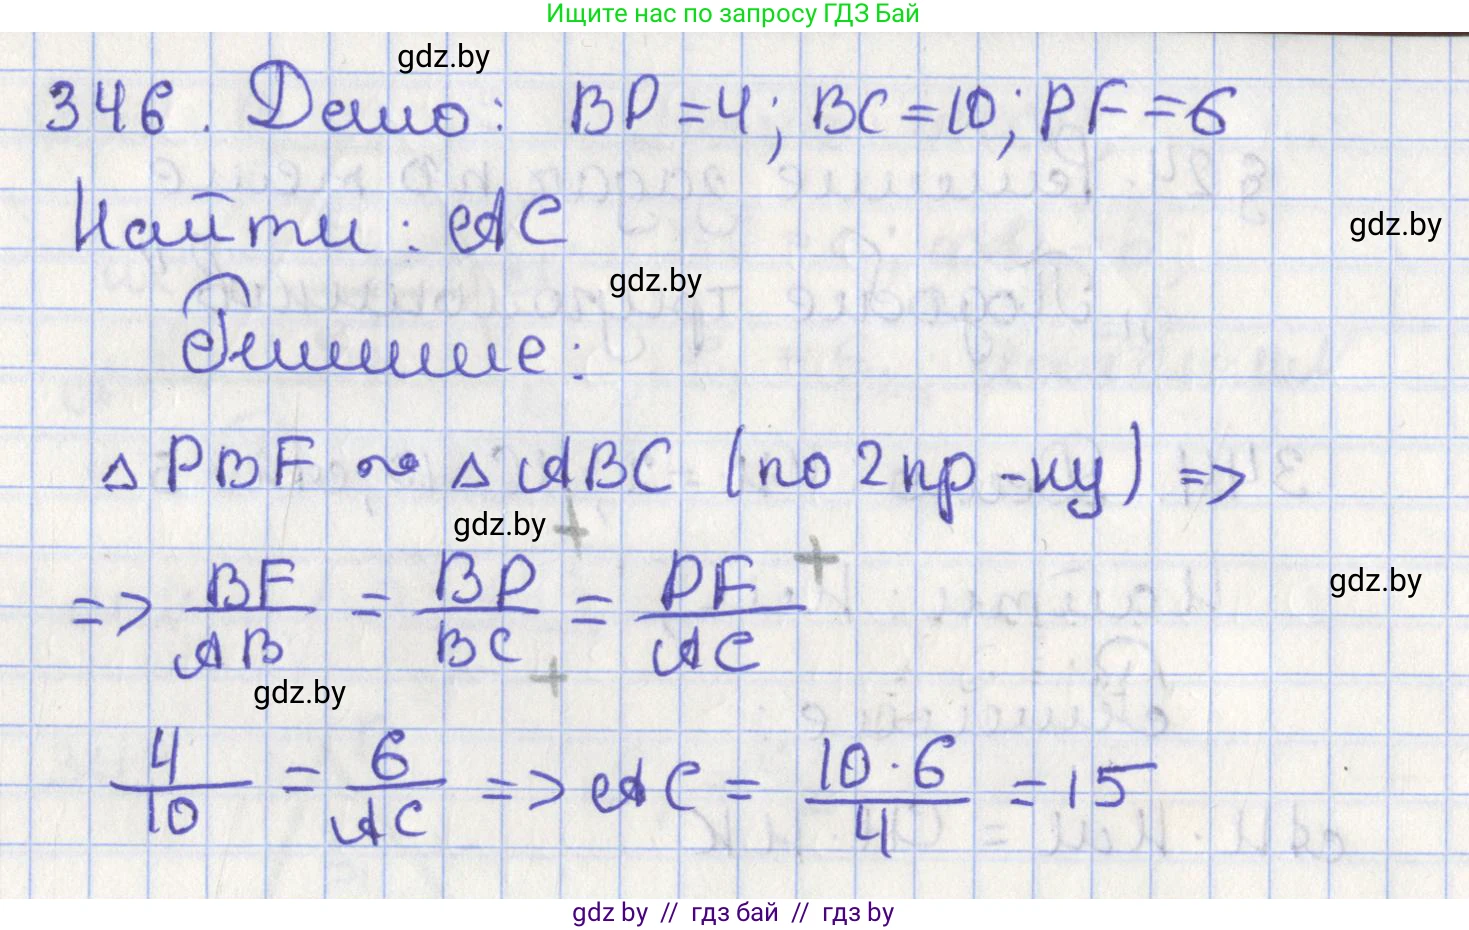 Ищите нас по запросу ГДЗ Бай
gdz.by
346. Дано: BP = 4; BC = 10; PF = 6
Найти: AC
gdz.by
gdz.by
Решение:
△ PBF ~ △ ABC (по 2 пр-ку) =>
gdz.by
=> BF/AB = BP/BC = PF/AC
gdz.by
gdz.by
4/10 = 6/AC => AC = 10 · 6/4 = 15
gdz by // гдз бай // гдз by